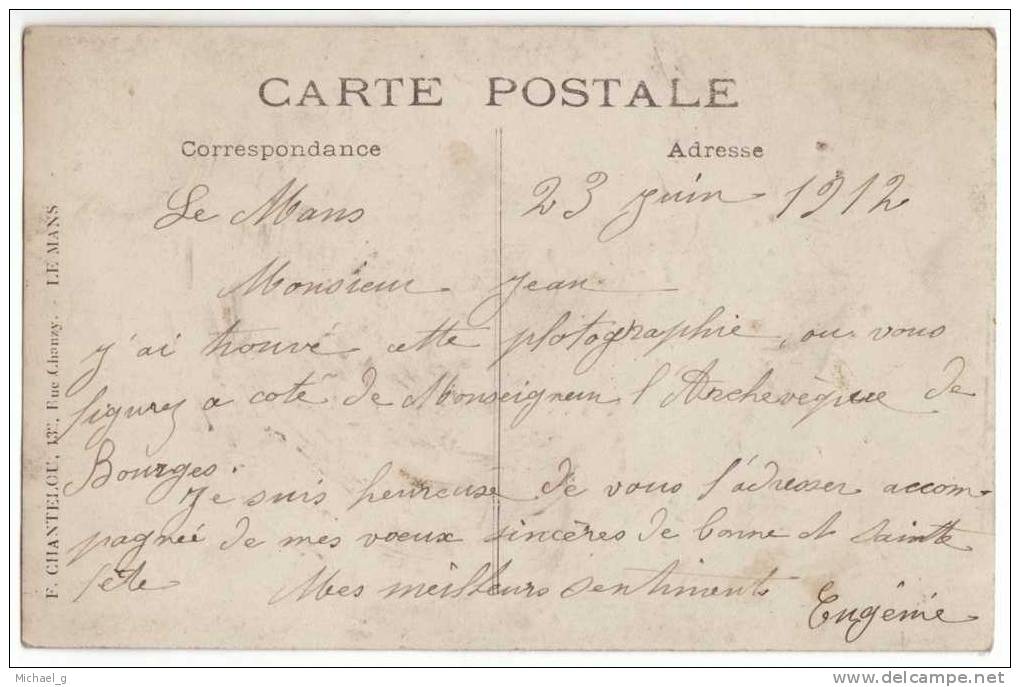 CARTE POSTALE
Correspondance Adresse
Le Mans 23 juin 1912
Monsieur Jean
j'ai trouvé cette photographie, ou vous
figurez a coté de Monseigneur l'Archevêque de
Bourges.
Je suis heureuse de vous l'adresser accom-
pagnée de mes voeux sincères de bonne et sainte
fête Mes meilleurs sentiments
Eugénie
F. CHANTELOU, 13ter, Rue Chanzy. - LE MANS
Michael_g www.delcampe.net